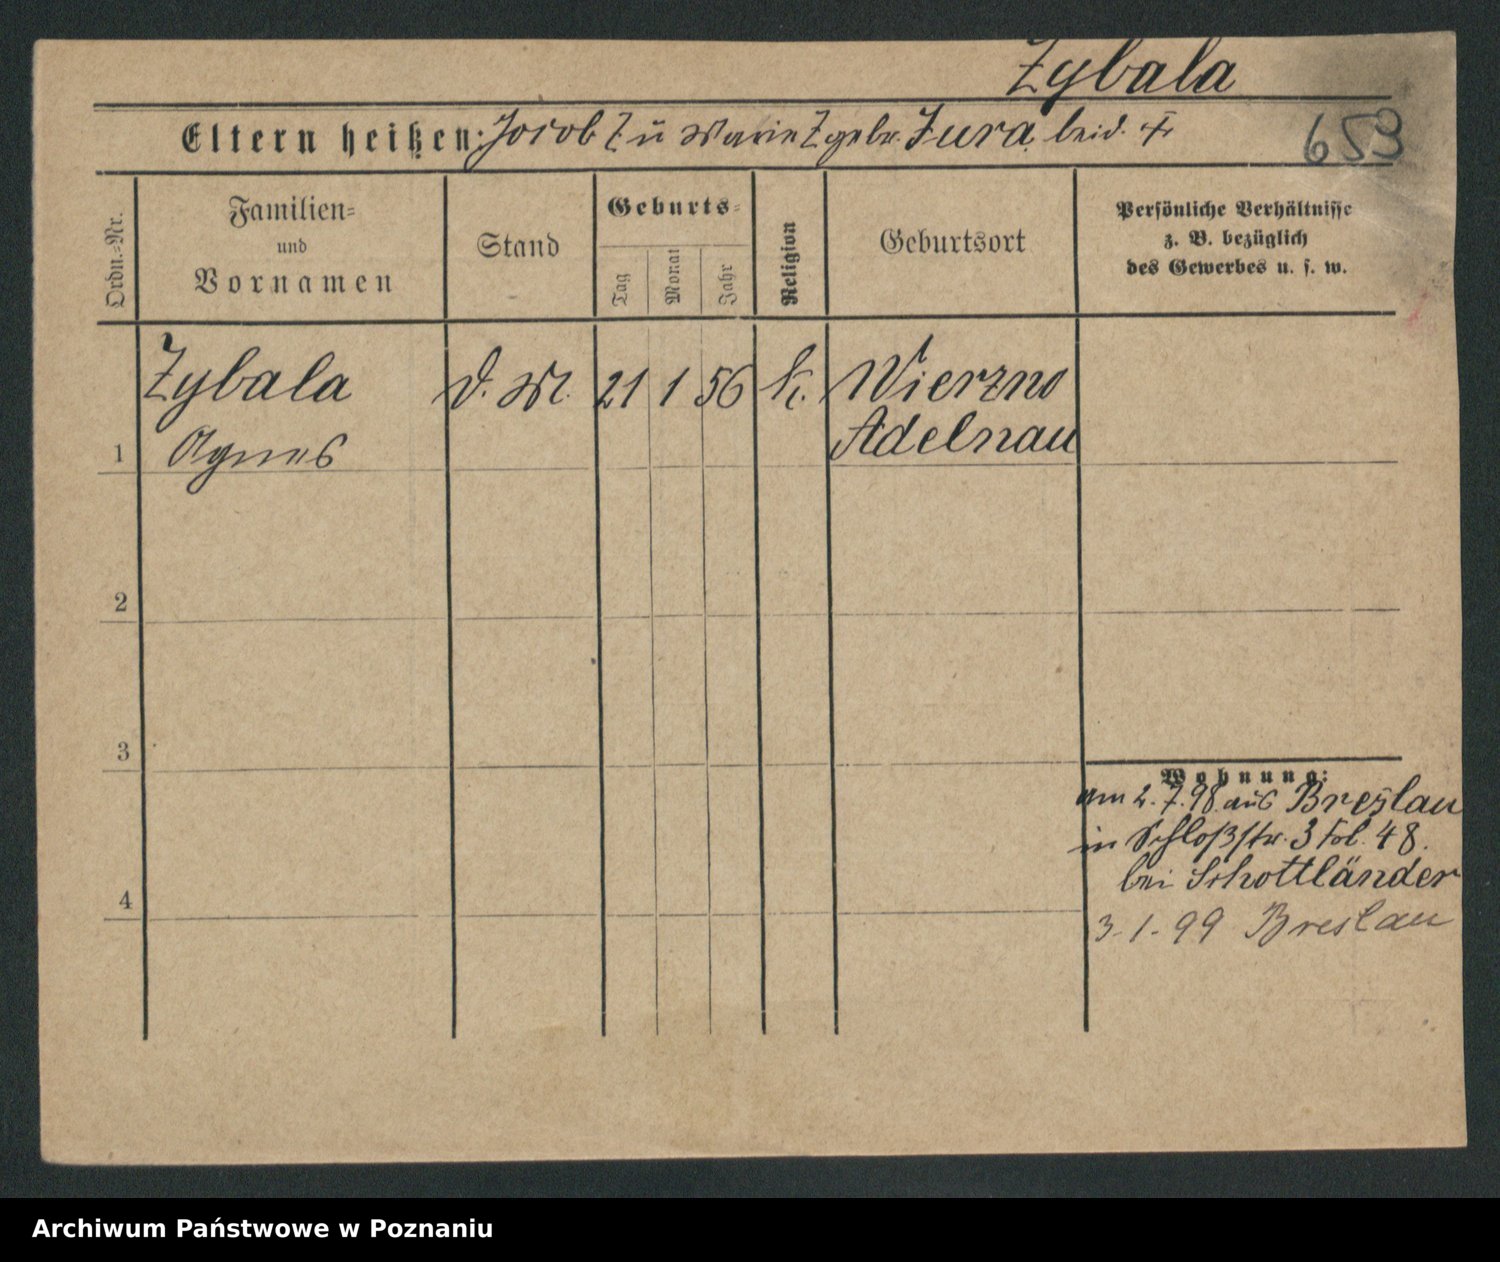 Zybala
Eltern heißen: Jacob Z. u Marie Z gebr. Zura beid. †
653
Ordn.-Nr.
Familien=
und
Vornamen
Stand
Geburts=
Tag
Monat
Jahr
Religion
Geburtsort
Persönliche Verhältnisse
z. B. bezüglich
des Gewerbes u. s. w.
Zybala d. M. 21 1 56 k. Wierzno
1 Agnes Adelnau
2
3
Wohnung:
am 2.7.98. aus Breslau
in Schloßstr. 3 Fol. 48.
bei Schottländer
4
3-1-99 Breslau
Archiwum Państwowe w Poznaniu